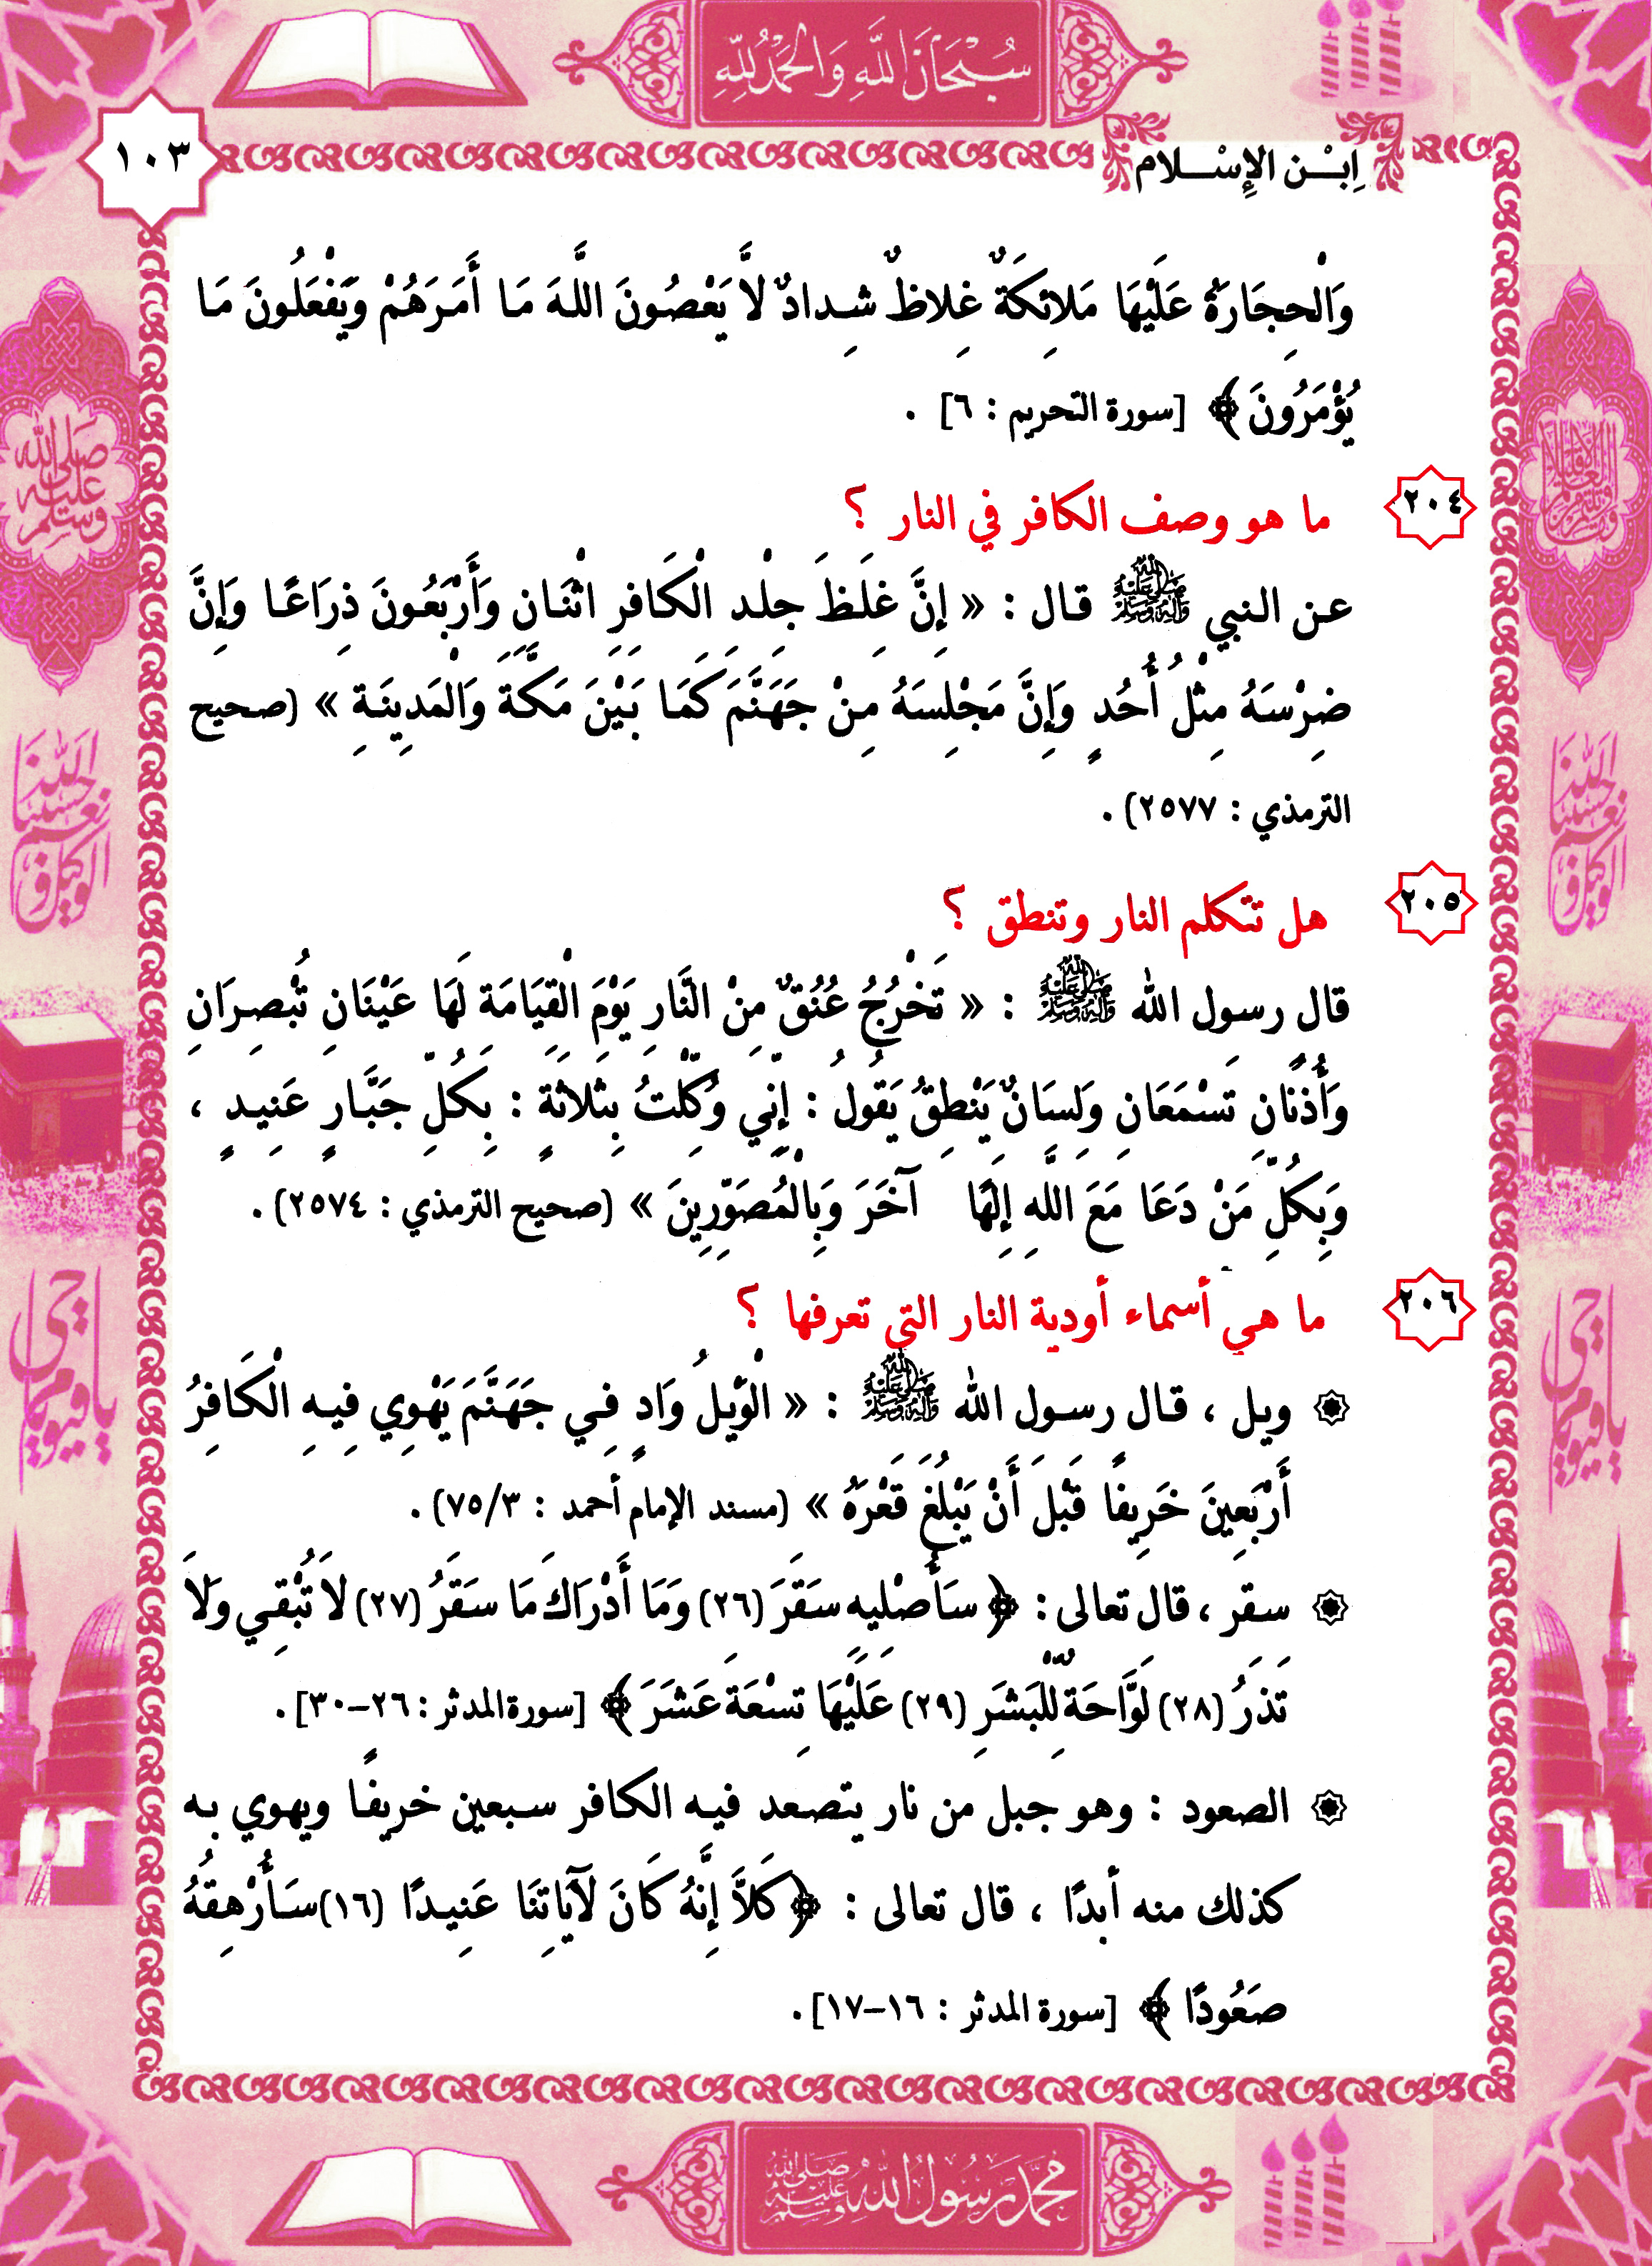 سُبْحَانَ اللَّهِ وَالْحَمْدُ لِلَّهِ
١٠٣
اِبْــن الإِسْــلام
وَالْحِجَارَةُ عَلَيْهَا مَلائِكَةٌ غِلاظٌ شِدادٌ لاَّ يَعْصُونَ اللَّهَ مَا أَمَرَهُمْ وَيَفْعَلُونَ مَا
يُؤْمَرُونَ ﴾ [سورة التحريم : ٦] .
٢٠٤ ما هو وصف الكافر في النار ؟
عن النبي ﷺ قال : « إِنَّ غِلَظَ جِلْدِ الْكَافِرِ اثْنَانِ وَأَرْبَعُونَ ذِرَاعًا وَإِنَّ
ضِرْسَهُ مِثْلُ أُحُدٍ وَإِنَّ مَجْلِسَهُ مِنْ جَهَنَّمَ كَمَا بَيْنَ مَكَّةَ وَالْمَدِينَةِ » (صحيح
الترمذي : ٢٥٧٧) .
٢٠٥ هل تتكلم النار وتنطق ؟
قال رسول الله ﷺ : « تَخْرُجُ عُنُقٌ مِنْ النَّارِ يَوْمَ الْقِيَامَةِ لَهَا عَيْنَانِ تُبْصِرَانِ
وَأُذُنَانِ تَسْمَعَانِ وَلِسَانٌ يَنْطِقُ يَقُولُ : إِنِّي وُكِّلْتُ بِثَلاثَةٍ : بِكُلِّ جَبَّارٍ عَنِيدٍ ،
وَبِكُلِّ مَنْ دَعَا مَعَ اللَّهِ إِلَهًا آخَرَ وَبِالْمُصَوِّرِينَ » (صحيح الترمذي : ٢٥٧٤) .
٢٠٦ ما هي أسماء أودية النار التي تعرفها ؟
ويل ، قال رسول الله ﷺ : « الْوَيْلُ وَادٍ فِي جَهَنَّمَ يَهْوِي فِيهِ الْكَافِرُ
أَرْبَعِينَ خَرِيفًا قَبْلَ أَنْ يَبْلُغَ قَعْرَهُ » (مسند الإمام أحمد : ٧٥/٣) .
سقر ، قال تعالى : ﴿ سَأُصْلِيهِ سَقَرَ (٢٦) وَمَا أَدْرَاكَ مَا سَقَرُ (٢٧) لاَ تُبْقِي وَلاَ
تَذَرُ (٢٨) لَوَّاحَةٌ لِّلْبَشَرِ (٢٩) عَلَيْهَا تِسْعَةَ عَشَرَ ﴾ [سورة المدثر : ٢٦-٣٠] .
الصعود : وهو جبل من نار يتصعد فيه الكافر سبعين خريفًا ويهوي به
كذلك منه أبدًا ، قال تعالى : ﴿ كَلاَّ إِنَّهُ كَانَ لآيَاتِنَا عَنِيدًا (١٦) سَأُرْهِقُهُ
صَعُودًا ﴾ [سورة المدثر : ١٦-١٧] .
صلى الله عليه وسلم
حسبنا الله ونعم الوكيل
حسبنا الله ونعم الوكيل
يا حي يا قيوم
يا حي يا قيوم
محمد رسول الله صلى الله عليه وسلم